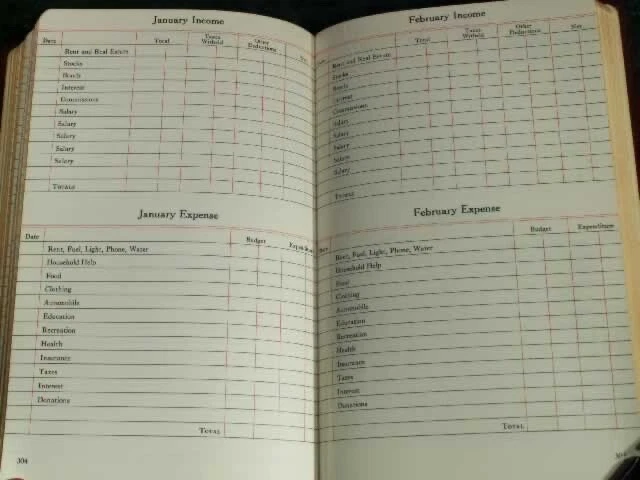 January Income
Date Total Taxes Withold Other Deductions
Rent and Real Estate
Stocks
Bonds
Interest
Commissions
Salary
Salary
Salary
Salary
Salary
Totals
January Expense
Date Budget Expenditure
Rent, Fuel, Light, Phone, Water
Household Help
Food
Clothing
Automobile
Education
Recreation
Health
Insurance
Taxes
Interest
Donations
Total
304
February Income
Date Total Taxes Withold Other Deductions Net
Rent and Real Estate
Stocks
Bonds
Interest
Commissions
Salary
Salary
Salary
Salary
Salary
Totals
February Expense
Date Budget Expenditure
Rent, Fuel, Light, Phone, Water
Household Help
Food
Clothing
Automobile
Education
Recreation
Health
Insurance
Taxes
Interest
Donations
Total